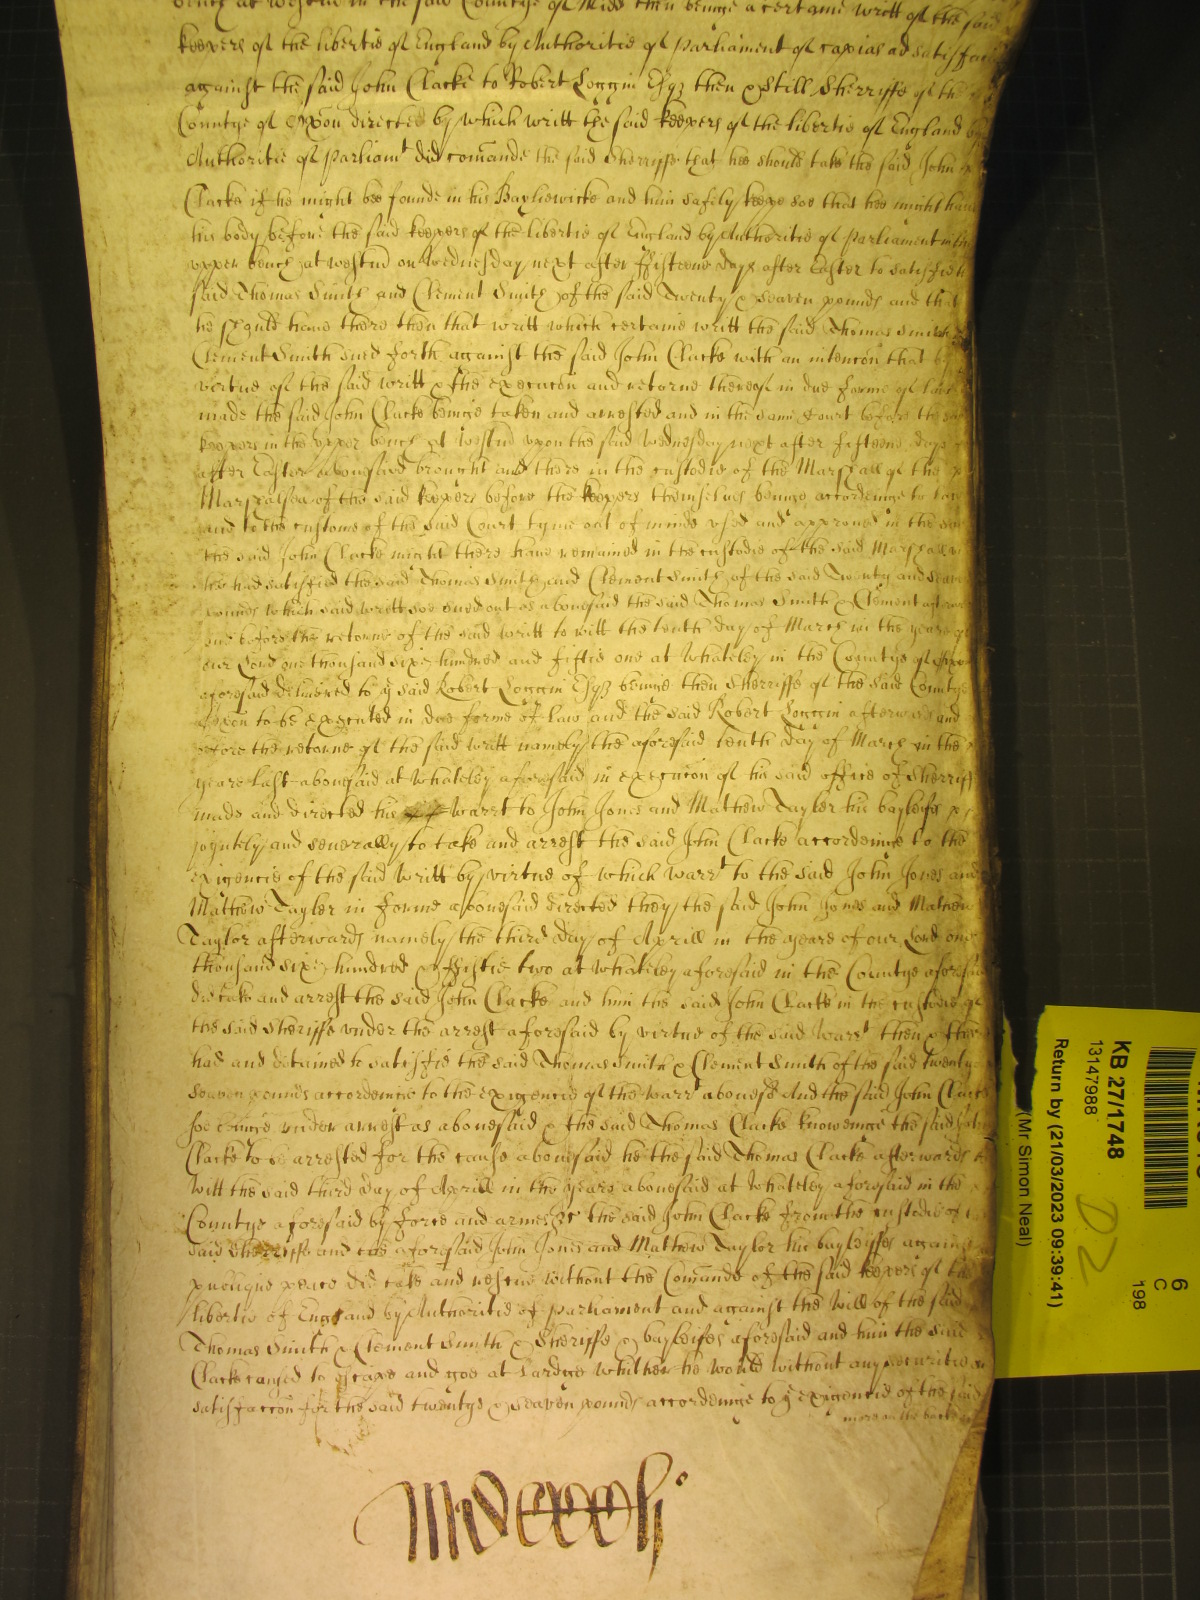 bench at Westm in the said Countye of Midd then beinge a certaine writt of the said
keepers of the libertie of England by Authoritie of Parliament of capias ad satisfaci
against the said John Clarke to Robert Loggin Esqr then & still Sherriffe of th
Countye of Oxon directed by which writt the said keepers of the libertie of England by
Authoritie of Parliamt did comande the said Sherriffe that hee should take the said John
Clarke if he might bee founde in his Bayliewicke and him safely keepe soe that hee might have
his body before the said keepers of the libertie of England by Authoritie of Parliament in the
upper bench at Westm on Wednesday next after ffifteene dayes after Easter to satisfie th
said Thomas Smith and Clement Smith of the said Twenty & seaven pounds and that
he should have there then that writt which certaine writt the said Thomas Smith
Clement Smith sued forth against the said John Clarke with an intencon that by
virtue of the said writt & the execucon and returne thereof in due forme of law
made the said John Clarke beinge taken and arrested and in the same Court before the
keepers in the upper bench at Westm upon the said Wednesday next after fifteene dayes
after Easter abovesaid brought and there in the custodie of the Marshall of the
Marshalsea of the said keepers before the keepers themselves beinge accordeinge to law
and to the custome of the said Court tyme out of minde used and approved in the
the said John Clarke might there have remained in the custodie of the said Marshall
hee had satisfied the said Thomas Smith and Clement Smith of the said Twenty and seaven
pounds which said writt soe sued out as abovesaid the said Thomas Smith & Clement afterw
and before the returne of the said writt to witt the tenth day of March in the yeare of
our Lord one thousand sixe hundred and fiftie one at Whateley in the Countye of Oxon
aforesaid delivered to ye said Robert Loggin Esqr beinge then Sherriffe of the said Countye
of Oxon to be executed in due forme of law and the said Robert Loggin afterwards and
before the returne of the said writt namely the aforesaid tenth day of March in the
yeare last abovesaid at Whateley aforesaid in execucon of his said office of Sherriffe
made and directed his Warrt to John Jones and Mathew Tayler his bayleifes
joyntely and severally to take and arrest the said John Clarke accordeinge to the
exigencie of the said writt by virtue of which warrt to the said John Jones and
Mathew Tayler in forme abovesaid directed they the said John Jones and Mathew
Taylor afterwards namely the third day of Aprill in the yeare of our Lord one
thousand sixe hundred & ffiftie two at Whateley aforesaid in the Countye aforesaid
did take and arrest the said John Clarke and him the said John Clarke in the custodie of
the said Sheriffe under the arrest aforesaid by virtue of the said Warrt then & there
had and detained to satisfie the said Thomas Smith & Clement Smith of the said twenty
seaven pounds accordeinge to the exigencie of the Warrt abovesd And the said John Clarke
soe beinge under arrest as abovesaid & the said Thomas Clarke knoweinge the said John
Clarke to be arrested for the cause abovesaid he the said Thomas Clarke afterwards to
witt the said third day of Aprill in the yeare abovesaid at Whateley aforesaid in the
Countye aforesaid by force and armes &c the said John Clarke from the custodie of the
said Sherriffe and the aforesaid John Jones and Mathew Taylor his bayleiffes against
publique peace did take and rescue without the Comande of the said keepers of the
libertie of England by Authoritie of Parliament and against the will of the said
Thomas Smith & Clement Smith & Sheriffe & bayleifes aforesaid and him the said
Clarke caused to escape and goe at Lardge whither he would without any securitie or
satisfaccon for the said twentye & seaven pounds accordeinge to ye exigencie of the said
more on the backe
KB 27/1748
13147988
Return by (21/03/2023 09:39:41)
(Mr Simon Neal)
D2
6
C
198